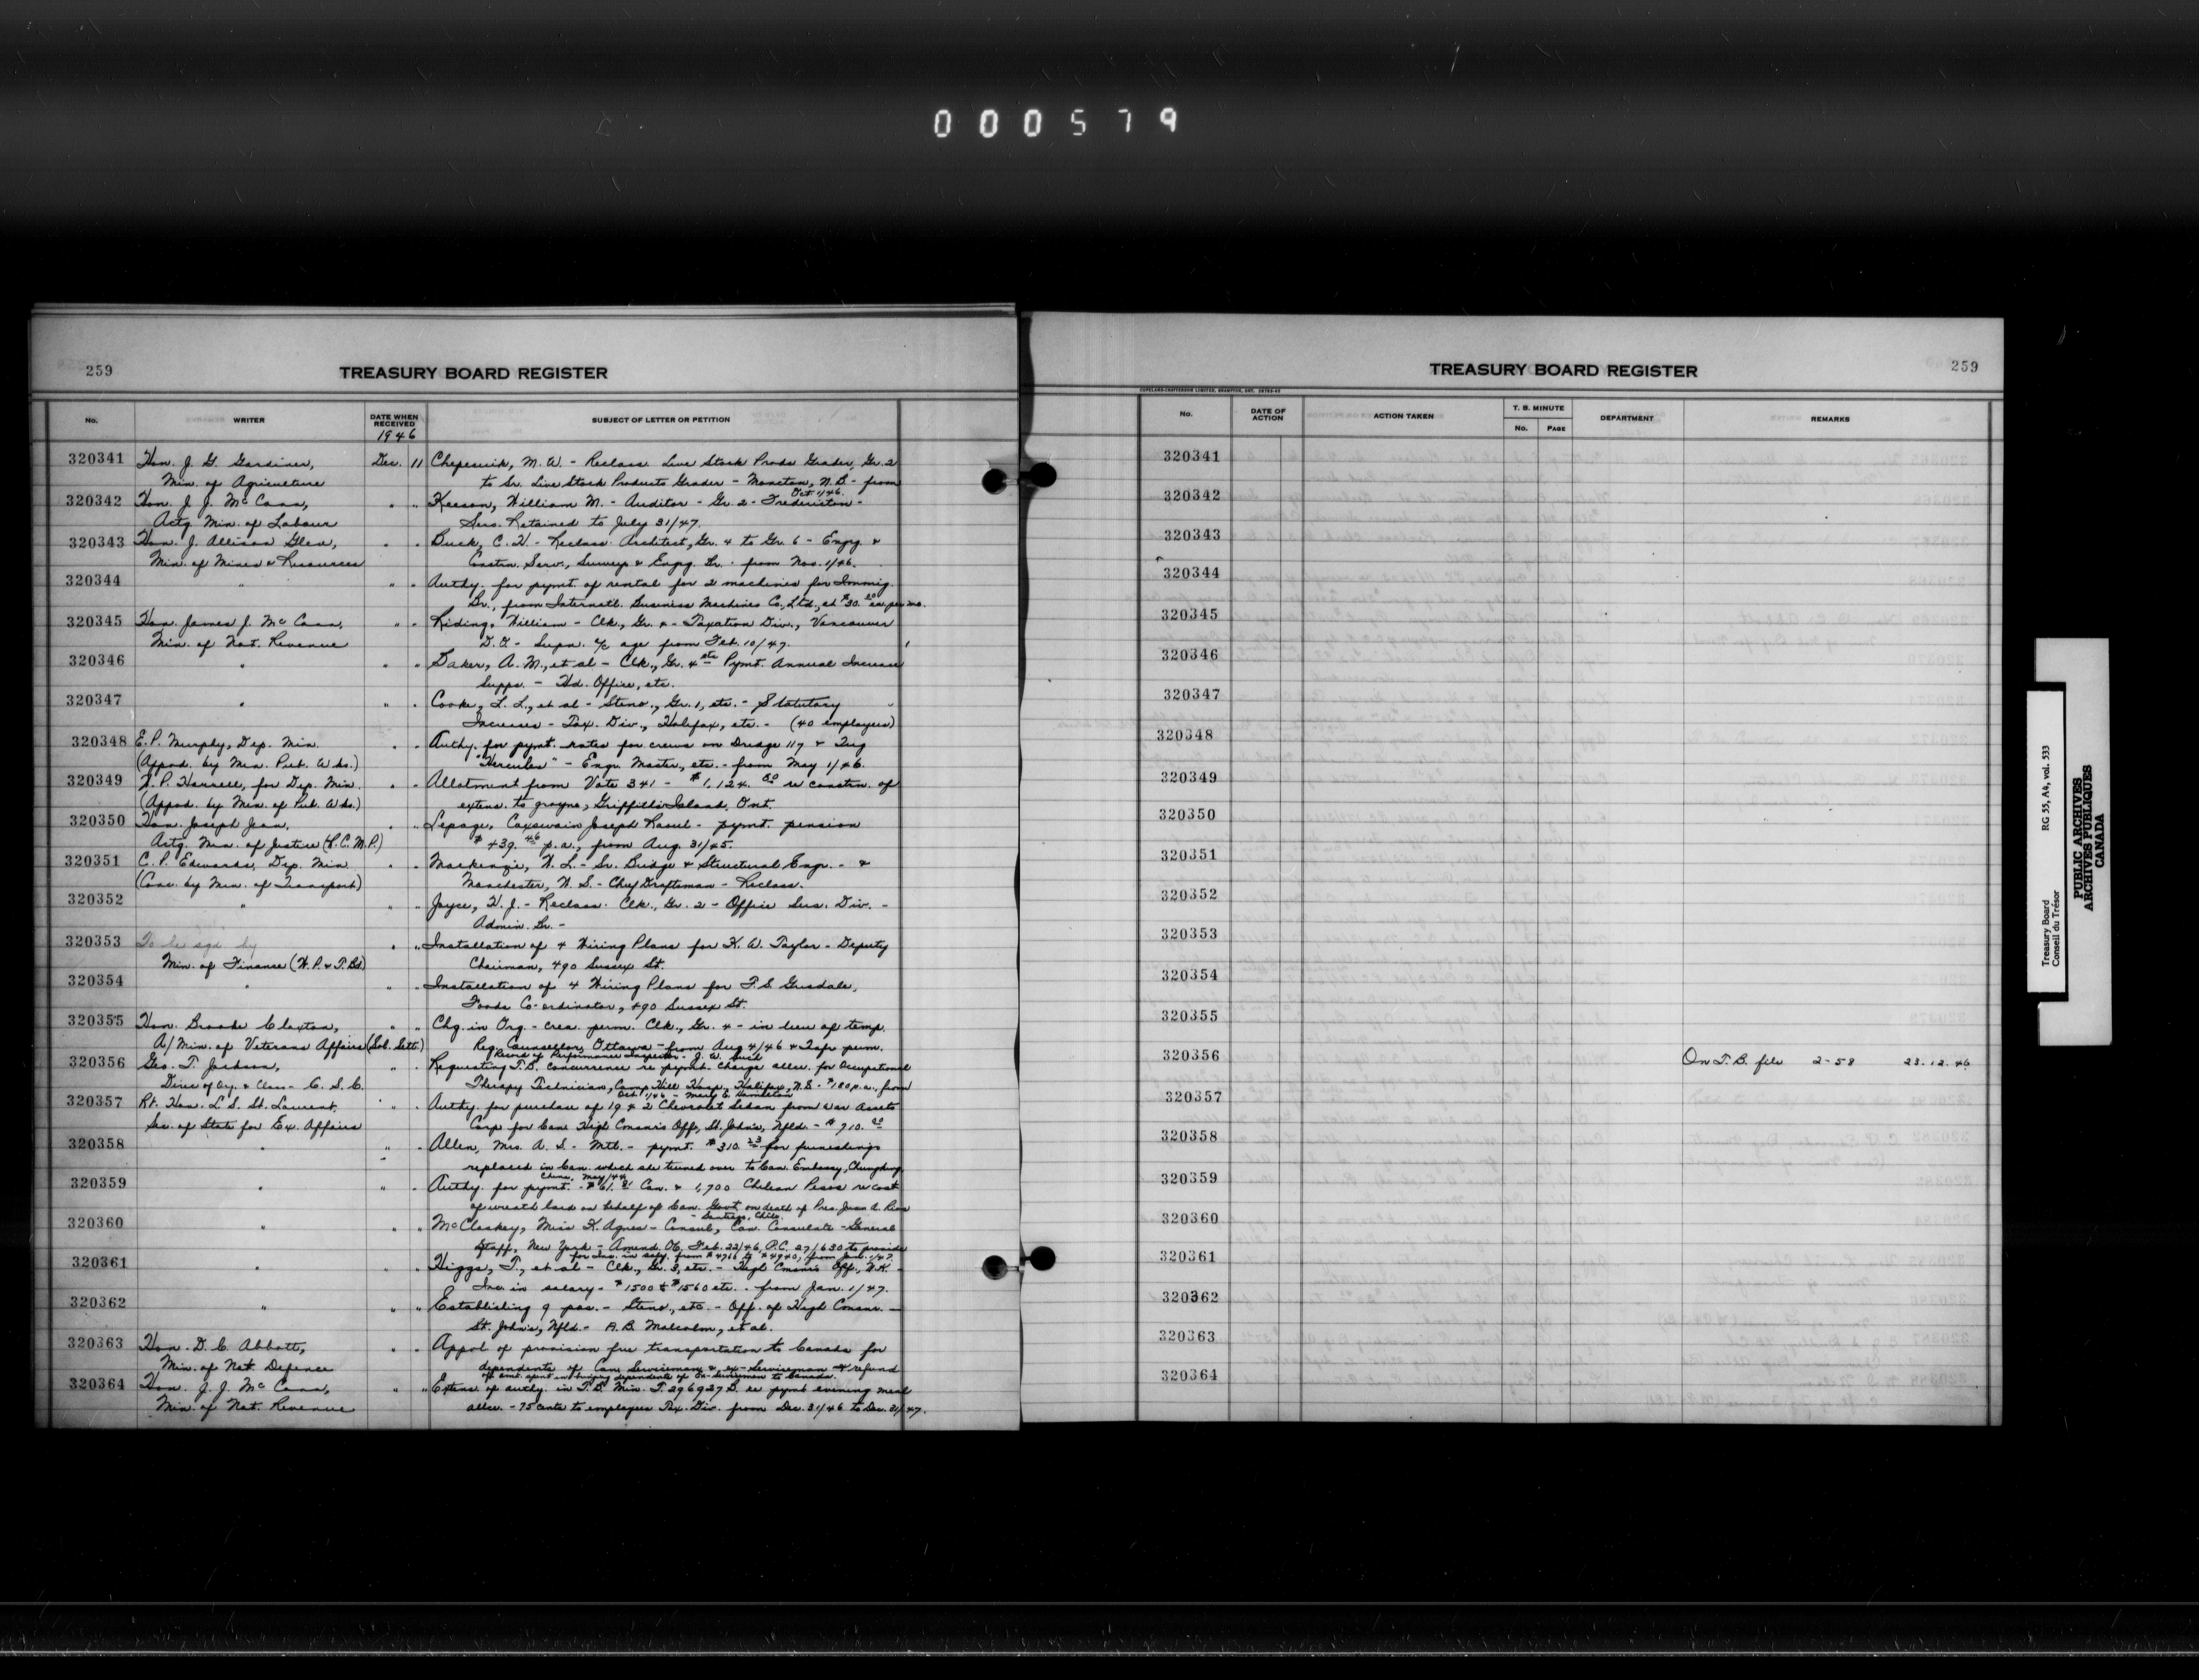 000579
259
TREASURY BOARD REGISTER
No.
WRITER
DATE WHEN RECEIVED
1946
SUBJECT OF LETTER OR PETITION
320341 Hon. J. G. Gardiner, Dec. 11 M. W. - Reclass. Live Stock Prods Grader, Gr. 2
Min. of Agriculture to Sr. Live Stock Products Grader - Moncton, N.B. - from
Oct. 1/46.
320342 Hon. J. J. McCann, " " Keeson, William M. - Auditor - Gr. 2 - Fredericton -
Actg. Min. of Labour Serv. Retained to July 31/47.
320343 Hon. J. Allison Glen, " " Buck, C. H. - Reclass. Architect, Gr. 4 to Gr. 6 - Engrg. &
Min. of Mines & Resources Constrn. Serv., Surveys & Engrg. Br. - from Nov. 1/46.
320344 " " " Authy. for pymt. of rental for 2 machines for Immig.
Br., from Internatl. Business Machines Co., Ltd., at $30.00 ea. per mo.
320345 Hon. James J. McCann, " " Riding, William - Clk., Gr. 4 - Taxation Div., Vancouver
Min. of Nat. Revenue D.O. - Supn. a/c age from Feb. 10/47.
320346 " " " Baker, A. M., et al - Clk., Gr. 4 etc. Pymt. Annual Increase
Supps. - Hd. Office, etc.
320347 " " " Cooke, L. L., et al - Steno., Gr. 1, etc. - Statutory
Increases - Tax. Div., Halifax, etc. - (40 employees)
320348 E. P. Murphy, Dep. Min. " " Authy. for pymt. rates for crews on Dredge 117 & Tug
(Appod. by Min. Pub. Wks.) "Hercules" - Engr. Master, etc. - from May 1/46.
320349 J. P. Harrell, for Dep. Min. " " Allotment from Vote 341 - $1,124.80 re constrn. of
(Appod. by Min. of Pub. Wks.) extens. to groyne, Griffith Island, Ont.
320350 Hon. Joseph Jean, " " Lepage, Coxswain Joseph Raoul - pymt. pension
Actg. Min. of Justice (R.C.M.P.) $439.46 p.a., from Aug. 31/45.
320351 C. P. Edwards, Dep. Min. " " Mackenzie, W. L. - Sr. Bridge & Structural Engr. - &
(Conc. by Min. of Transport) Manchester, W. S. - Chief Draftsman - Reclass.
320352 " " " Joyce, H. J. - Reclass. Clk., Gr. 2 - Office Serv. Div. -
Admin. Br. -
320353 To be sgd. by " " Installation of 4 Wiring Plans for K. W. Taylor - Deputy
Min. of Finance (W.P. & T.Bd.) Chairman, 490 Sussex St.
320354 " " " Installation of 4 Wiring Plans for F. S. Grisdale,
Foods Co-ordinator, 490 Sussex St.
320355 Hon. Brooke Claxton, " " Chg. in Org. - crea. perm. Clk., Gr. 4 - in lieu of temp.
A/Min. of Veterans Affairs (Sol. Sett.) Reg. Counsellor, Ottawa - from Aug 4/46 & Tsfr perm.
Record of Performance Inspector - J. W.
320356 Geo. T. Jackson, " " Requesting T.B. concurrence re pymt. charge allce. for Occupational
Direc. of Org. & Class - C. S. C. Therapy Technician, Camp Hill Hosp., Halifax, N.S. - $180 p.a., from
Oct. 1/46 - Mary E.
320357 Rt. Hon. L. S. St. Laurent, " " Authy. for purchase of 1942 Chevrolet Sedan from War Assets
Sec. of State for Ex. Affairs Corp for Can. High Comsnr's Off., St. John's, Nfld. - $910.00
320358 " " " Allen, Mrs. A. S. - Mtl. - pymt. $310.23 for furnishings
replaced in Can. which she turned over to Can. Embassy, Chungking,
China, May/44.
320359 " " " Authy. for pymt. - $61. Can. & 1,700 Chilean Pesos re cost
of wreath laid on behalf of Can. Govt. on death of Pres. Juan A. Rios
- Santiago, Chile.
320360 " " " McCloskey, Miss K. Agnes - Consul, Can. Consulate - General
Staff, New York - Amend. Ob. Feb. 22/46, P.C. 27/630 to provide
for inc. in salry. from $4716 to $4940, from Jan. 1/47.
320361 " " " Higgs, T., et al - Clk., Gr. 3, etc. - High Cmsnr's Off., U.K. -
Inc. in salary - $1500 to $1560 etc. - from Jan. 1/47.
320362 " " " Establishing 9 pos. - Steno., etc. - Off. of High Comsnr. -
St. John's, Nfld. - A. B. Malcolm, et al.
320363 Hon. D. C. Abbott, " " Appvl of provision free transportation to Canada for
Min. of Nat. Defence dependents of Can. Serviceman & ex-Serviceman & refund
of amt. spent in bringing dependents of Ex-Servicemen to Canada.
320364 Hon. J. J. McCann, " " Extens. of authy. in T.B. Min. T.296927B. re pymt evening meal
Min. of Nat. Revenue allce. - 75 cents to employees Tax. Div. from Dec. 31/46 to Dec. 31/47.
TREASURY BOARD REGISTER
259
COPELAND-CHATTERSON LIMITED, BRAMPTON, ONT.
No.
DATE OF ACTION
ACTION TAKEN
T. B. MINUTE
No. PAGE
DEPARTMENT
REMARKS
320341
320342
320343
320344
320345
320346
320347
320348
320349
320350
320351
320352
320353
320354
320355
320356 On T.B. file 2-58 23.12.46
320357
320358
320359
320360
320361
320362
320363
320364
Treasury Board RG 55, A4, vol. 533
Conseil du Trésor
PUBLIC ARCHIVES
ARCHIVES PUBLIQUES
CANADA